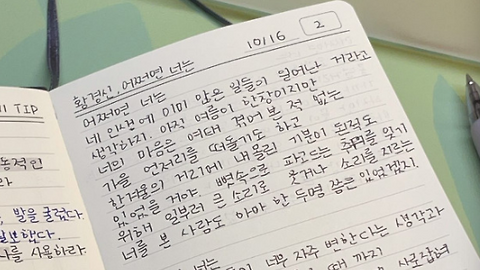 10/16
2
황경신, 어쩌면 너는
어쩌면 너는
네 인생에 이미 많은 일들이 일어난 거라고
생각하지. 아직 여름이 한창이지만
너의 마음은 여태 겪어 본 적 없는
가을 언저리를 떠돌기도 하고
한겨울의 거리에 내몰린 기분이 든 적도
있었을 거야. 뼛속으로 파고드는 추위를 잊기
위해 일부러 큰 소리로 웃거나 소리를 지르는
너를 본 사람도 아마 한 두명 쯤은 있었겠지.
너는
너무 자주 변한다는 생각과
때 까지
사로잡혀
TIP
동적인
라
, 발을 굴렀다.
나를 사용하라.